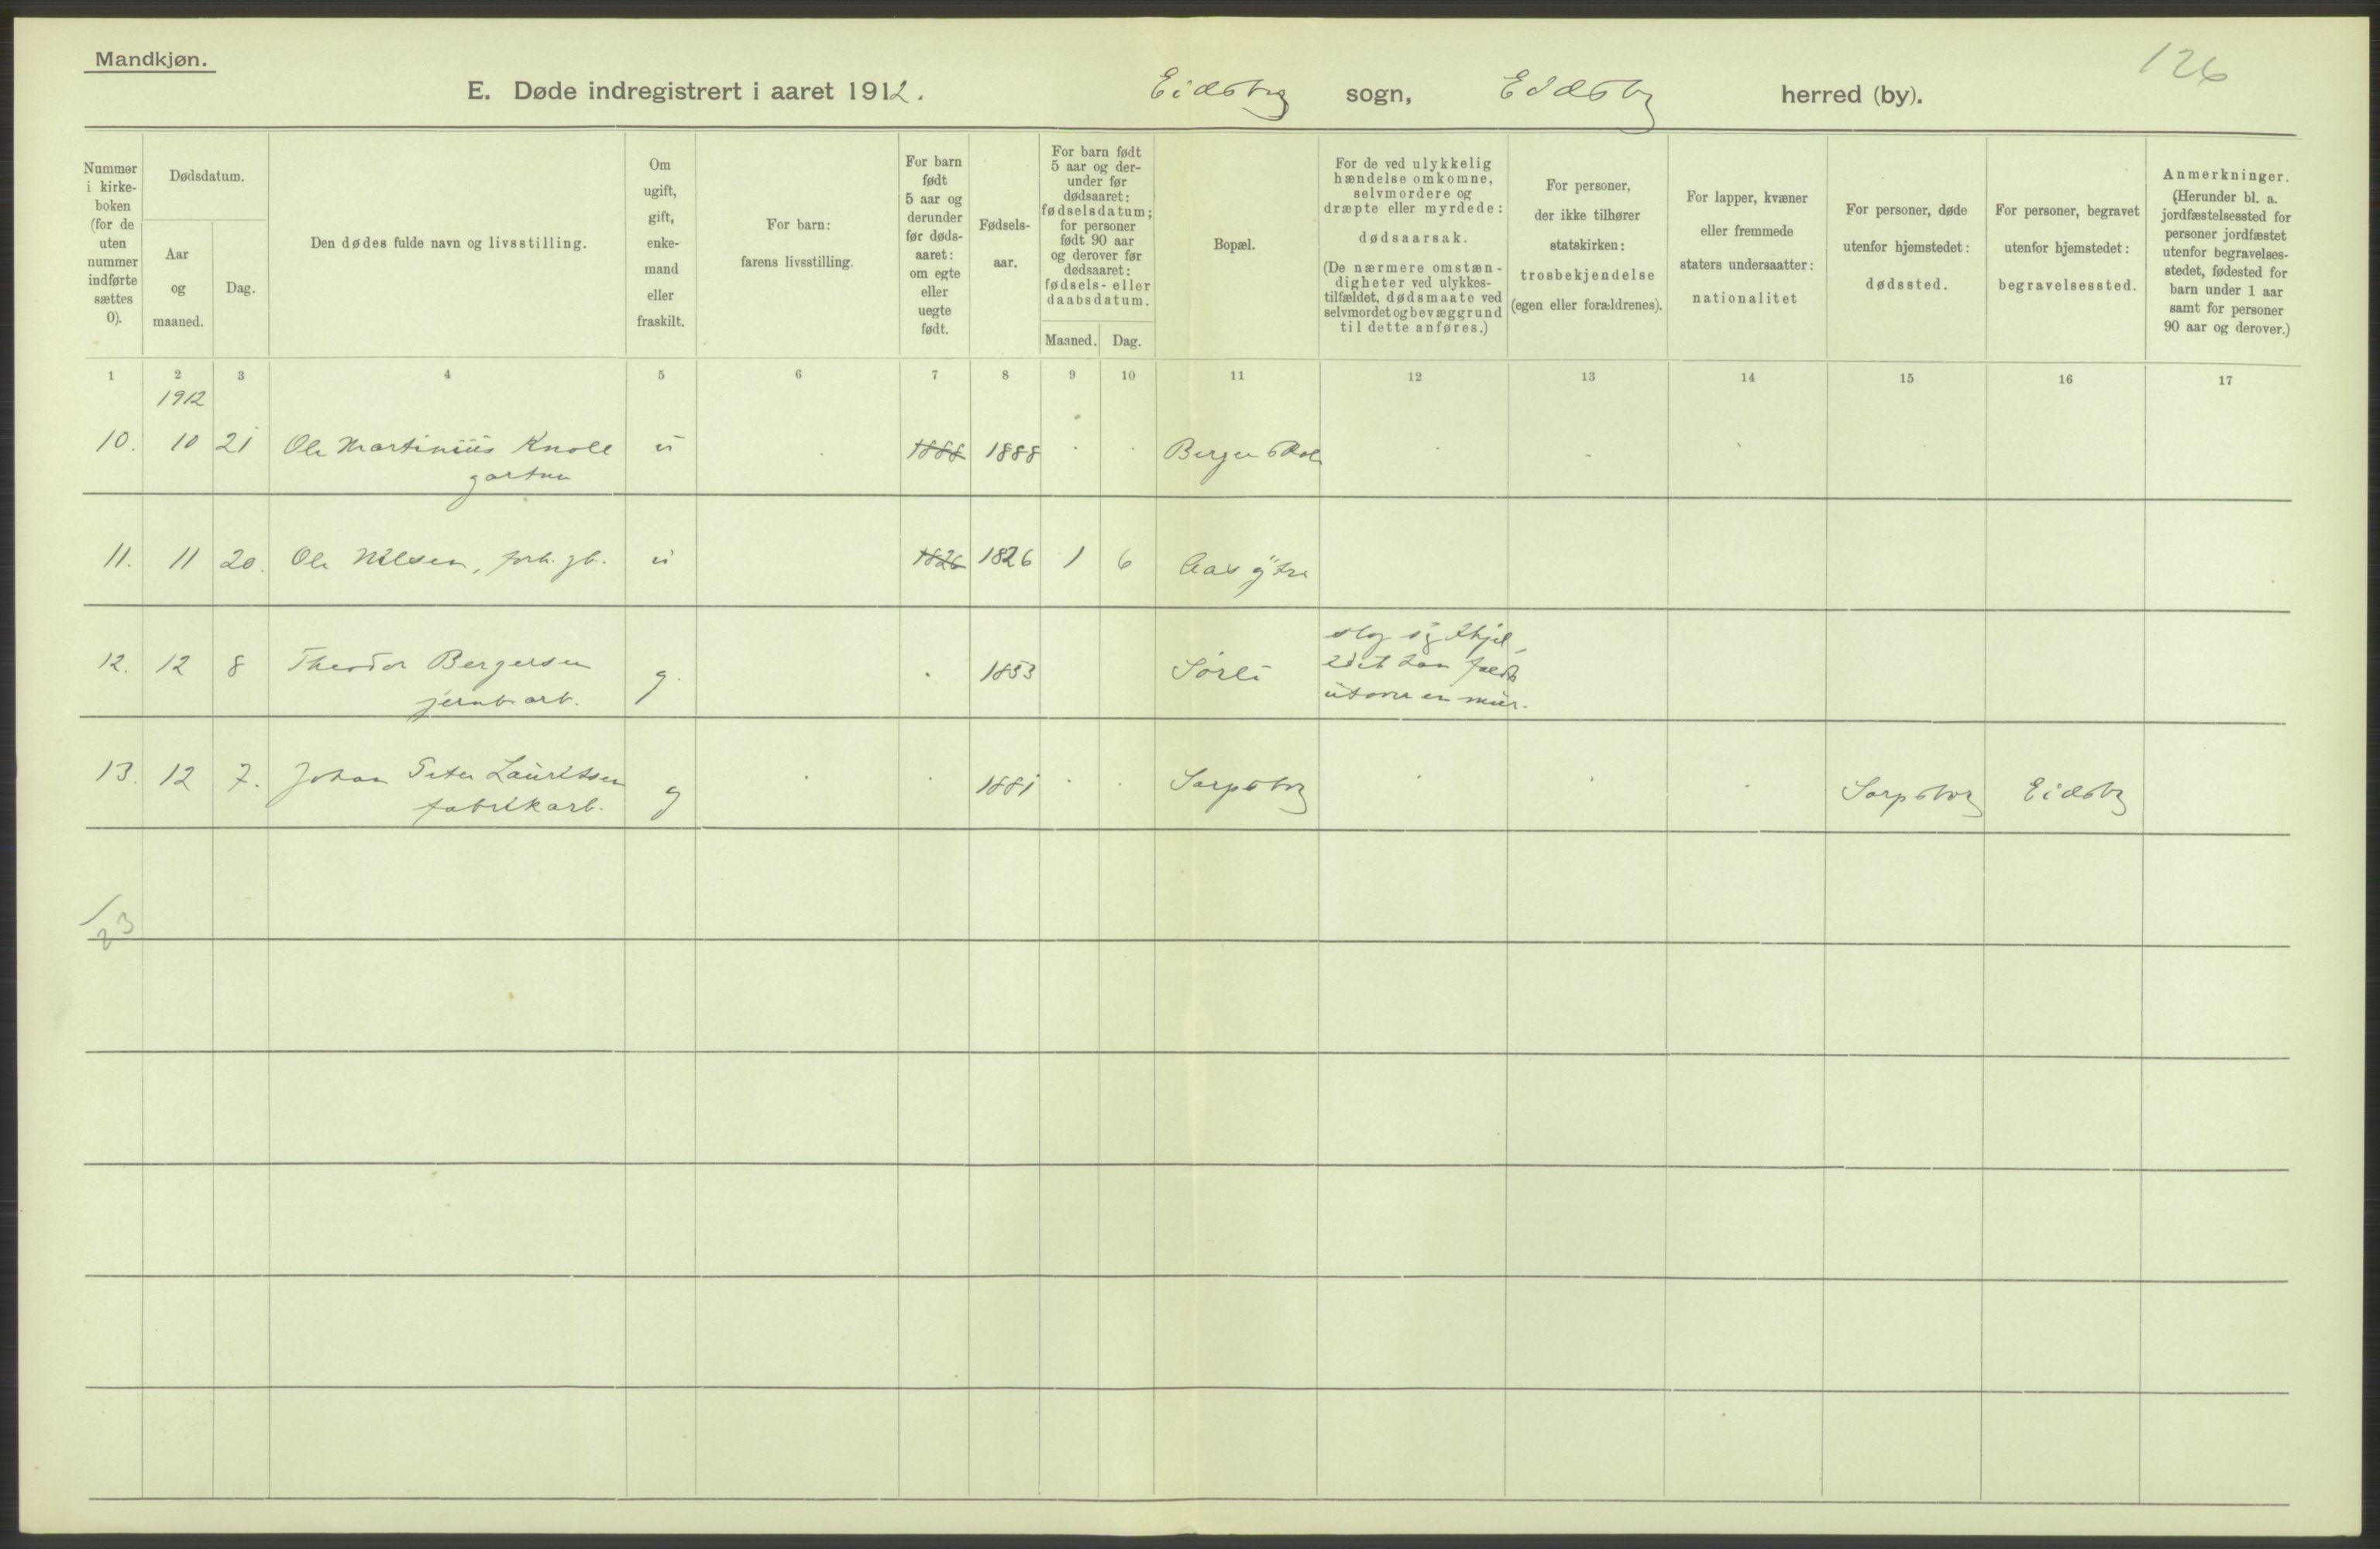 Mandkjøn.
126
E. Døde indregistrert i aaret 1912. Eidsbrg sogn, Eidsbg herred (by).
Nummer i kirke-boken (for de uten nummer indførte sættes 0).
Dødsdatum.
Aar og maaned.
Dag.
Den dødes fulde navn og livsstilling.
Om ugift, gift, enke-mand eller fraskilt.
For barn: farens livsstilling.
For barn født 5 aar og derunder før døds-aaret: om egte eller uegte født.
Fødsels-aar.
For barn født 5 aar og der-under før dødsaaret: fødselsdatum; for personer født 90 aar og derover før dødsaaret: fødsels- eller daabsdatum.
Maaned. Dag.
Bopæl.
For de ved ulykkelig hændelse omkomne, selvmordere og dræpte eller myrdede: dødsaarsak. (De nærmere omstæn-digheter ved ulykkes-tilfældet, dødsmaate ved selvmordet og bevæggrund til dette anføres.)
For personer, der ikke tilhører statskirken: trosbekjendelse (egen eller forældrenes).
For lapper, kvæner eller fremmede staters undersaatter: nationalitet
For personer, døde utenfor hjemstedet: dødssted.
For personer, begravet utenfor hjemstedet: begravelsessted.
Anmerkninger. (Herunder bl. a. jordfæstelsessted for personer jordfæstet utenfor begravelses-stedet, fødested for barn under 1 aar samt for personer 90 aar og derover.)
1 2 3 4 5 6 7 8 9 10 11 12 13 14 15 16 17
1912
10. 10 21 Ole Martinius Knoll u 1888 1888 Berger skole
gartner
11. 11 20. Ole Nilsen, forh. gb. u 1826 1826 1 6 Aas ytre
12. 12 8 Theodor Bergersen g. 1853 Sørli slog sig ihjel,
jernb arb. idet han faldt
utover en mur.
13. 12 7. Johan Peter Lauritsen g 1881 Sarpsborg Sarpsborg Eidsbg
fabrikarb.